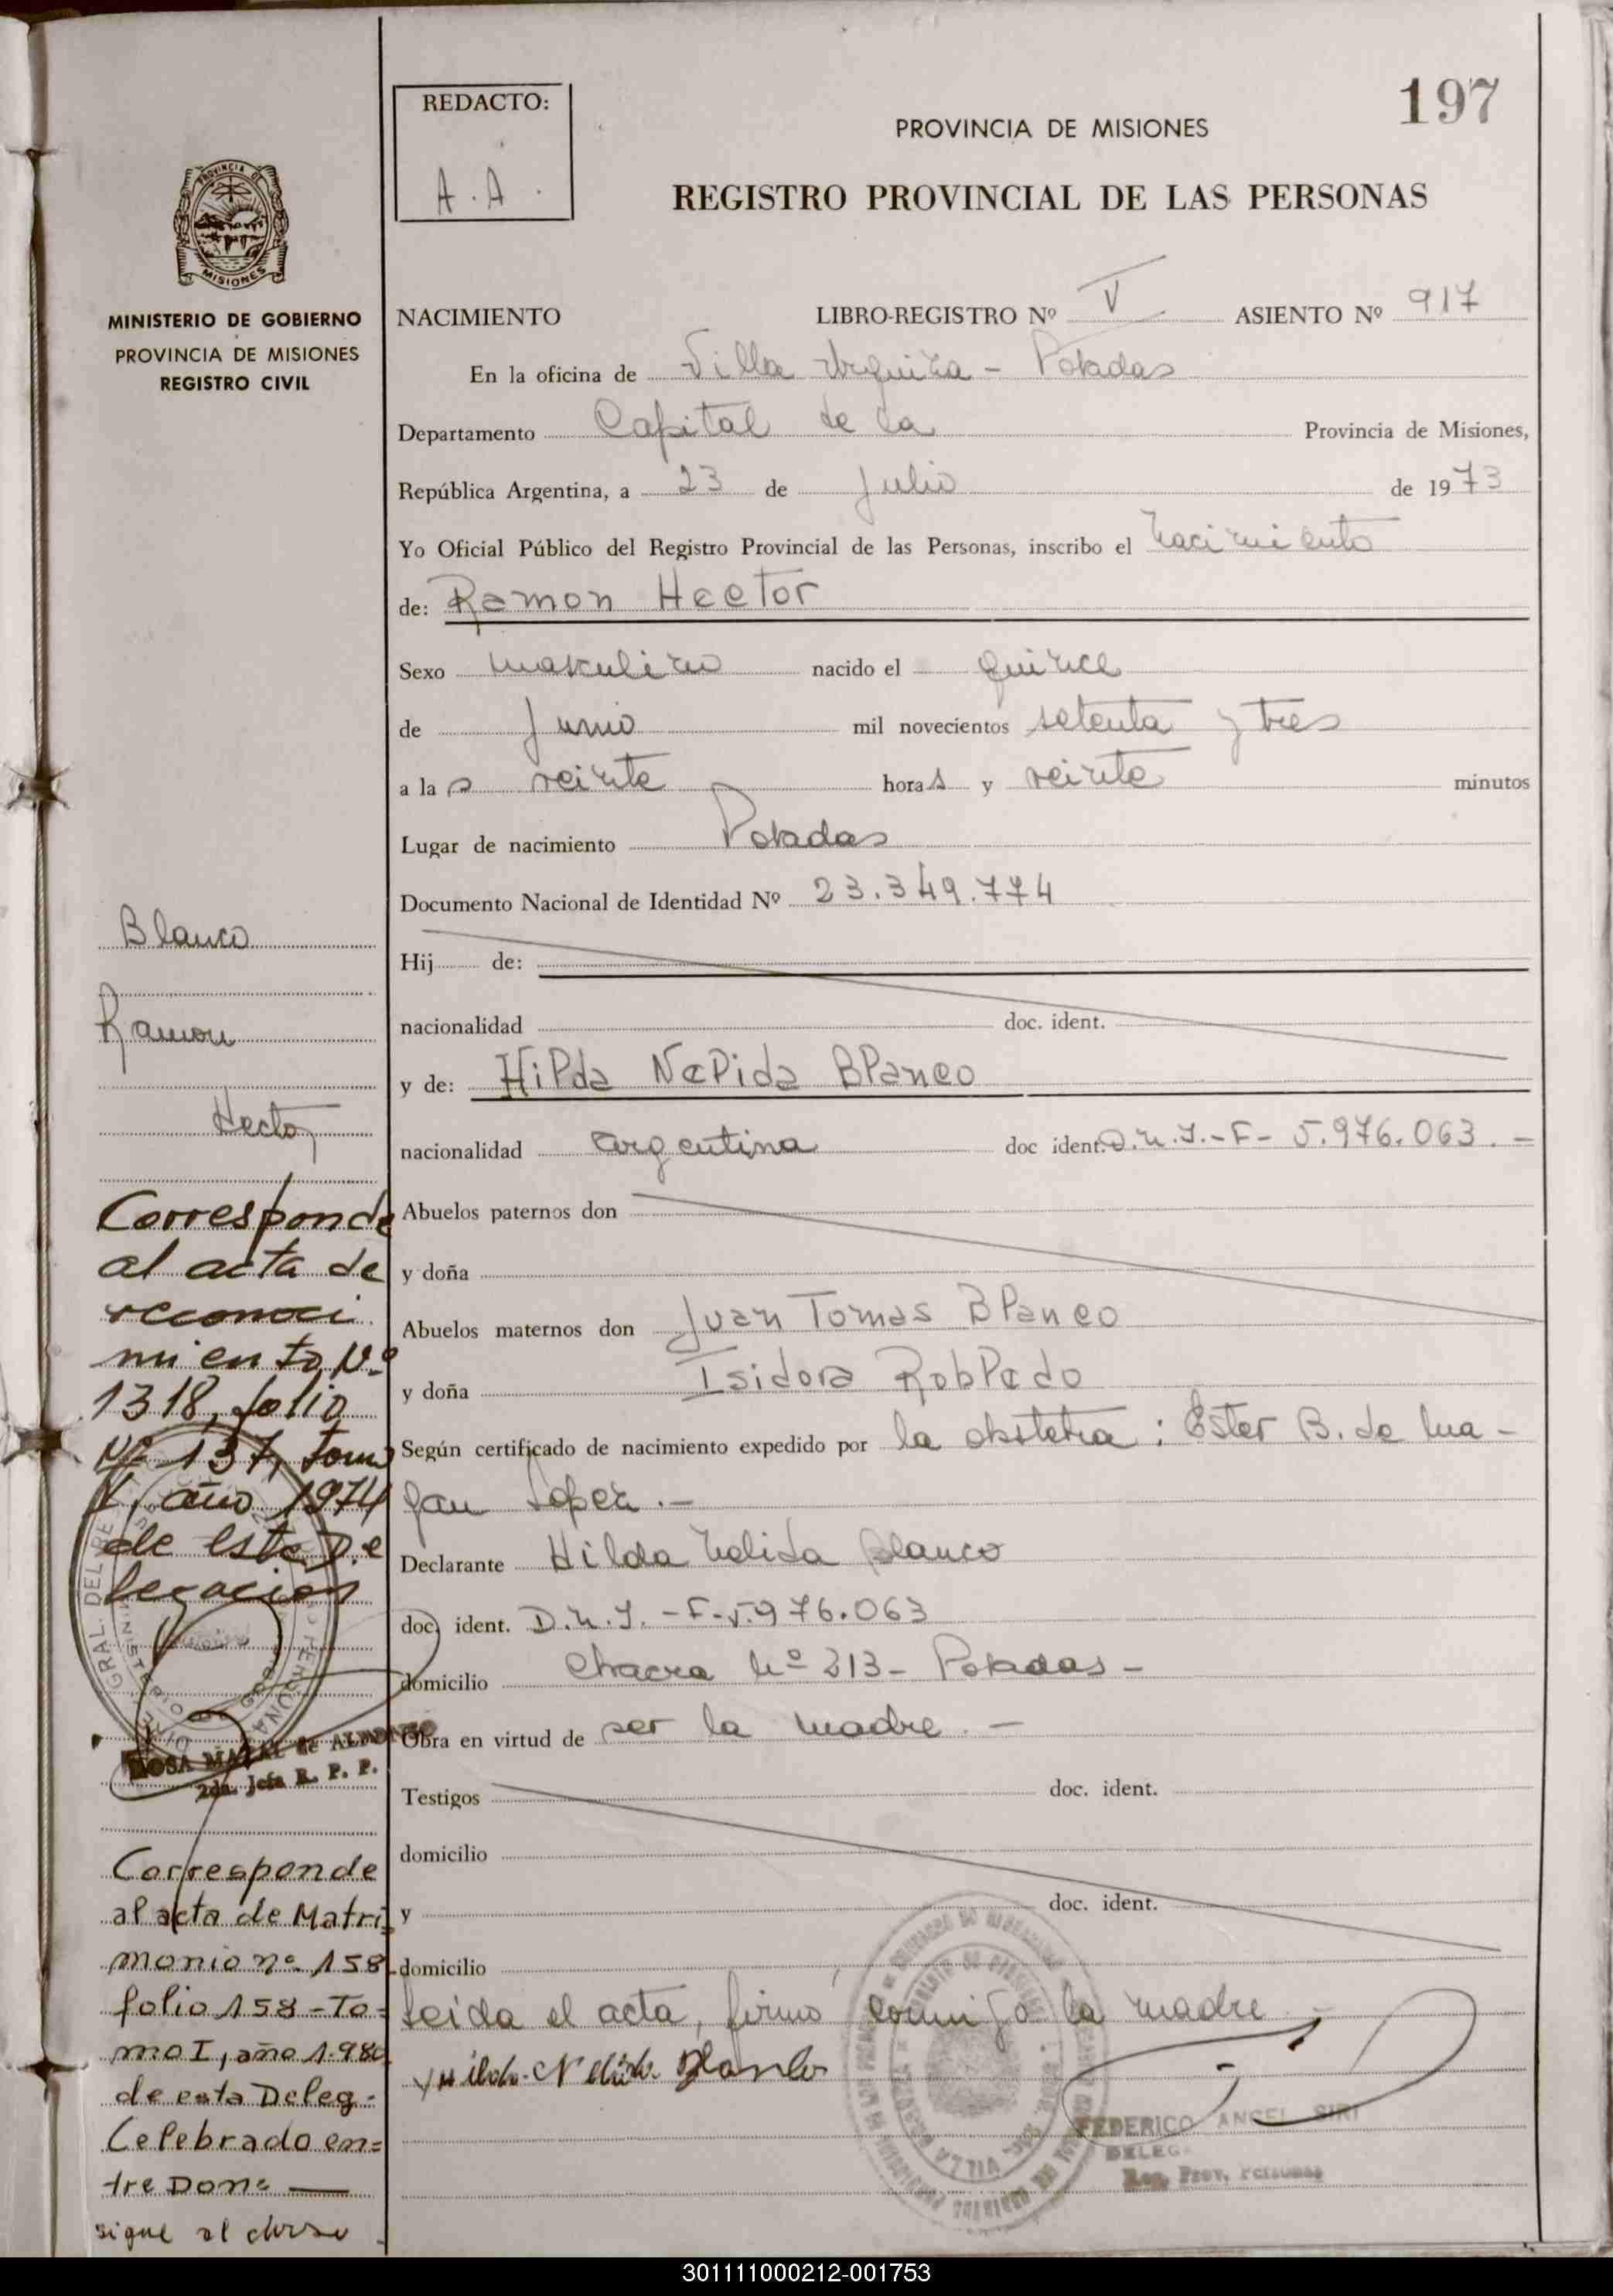 197
REDACTO:
A.A.
PROVINCIA DE MISIONES
REGISTRO PROVINCIAL DE LAS PERSONAS
PROVINCIA DE
MISIONES
MINISTERIO DE GOBIERNO
PROVINCIA DE MISIONES
REGISTRO CIVIL
NACIMIENTO LIBRO-REGISTRO Nº V ASIENTO Nº 917
En la oficina de Villa Urquiza - Posadas
Departamento Capital de la Provincia de Misiones,
República Argentina, a 23 de Julio de 1973
Yo Oficial Público del Registro Provincial de las Personas, inscribo el nacimiento
de: Ramon Hector
Sexo masculino nacido el quince
de Junio mil novecientos setenta y tres
a las veinte horas y veinte minutos
Lugar de nacimiento Posadas
Documento Nacional de Identidad Nº 23.349.774
Hij de:
nacionalidad doc. ident.
y de: Hilda Nelida Blanco
nacionalidad argentina doc ident. D.N.I.-F- 5.976.063.-
Abuelos paternos don
y doña
Abuelos maternos don Juan Tomas Blanco
y doña Isidora Robledo
Según certificado de nacimiento expedido por la obstetra: Ester B. de Lua-
jan Lopez.-
Declarante Hilda Nelida Blanco
doc. ident. D.N.I.-F-5.976.063
domicilio Chacra Nº 213- Posadas-
Obra en virtud de ser la madre.-
Testigos doc. ident.
domicilio
y doc. ident.
domicilio
Leida el acta, firmó conmigo la madre.-
Hilda Nelida Blanco
FEDERICO ANGEL SIRI
DELEG
Reg. Prov. Personas
Blanco
Ramon
Hector
Corresponde
al acta de
reconoci
miento Nº
1318, folio
Nº 137, tomo
I, año 1974
de esta De
legacion
ROSA
2da. Jefa R. P. P.
Corresponde
al acta de Matri
monio nº 158
folio 158-To=
mo I, año 1.980
de esta Deleg=
Celebrado en=
tre Don=
sigue al dorso
301111000212-001753